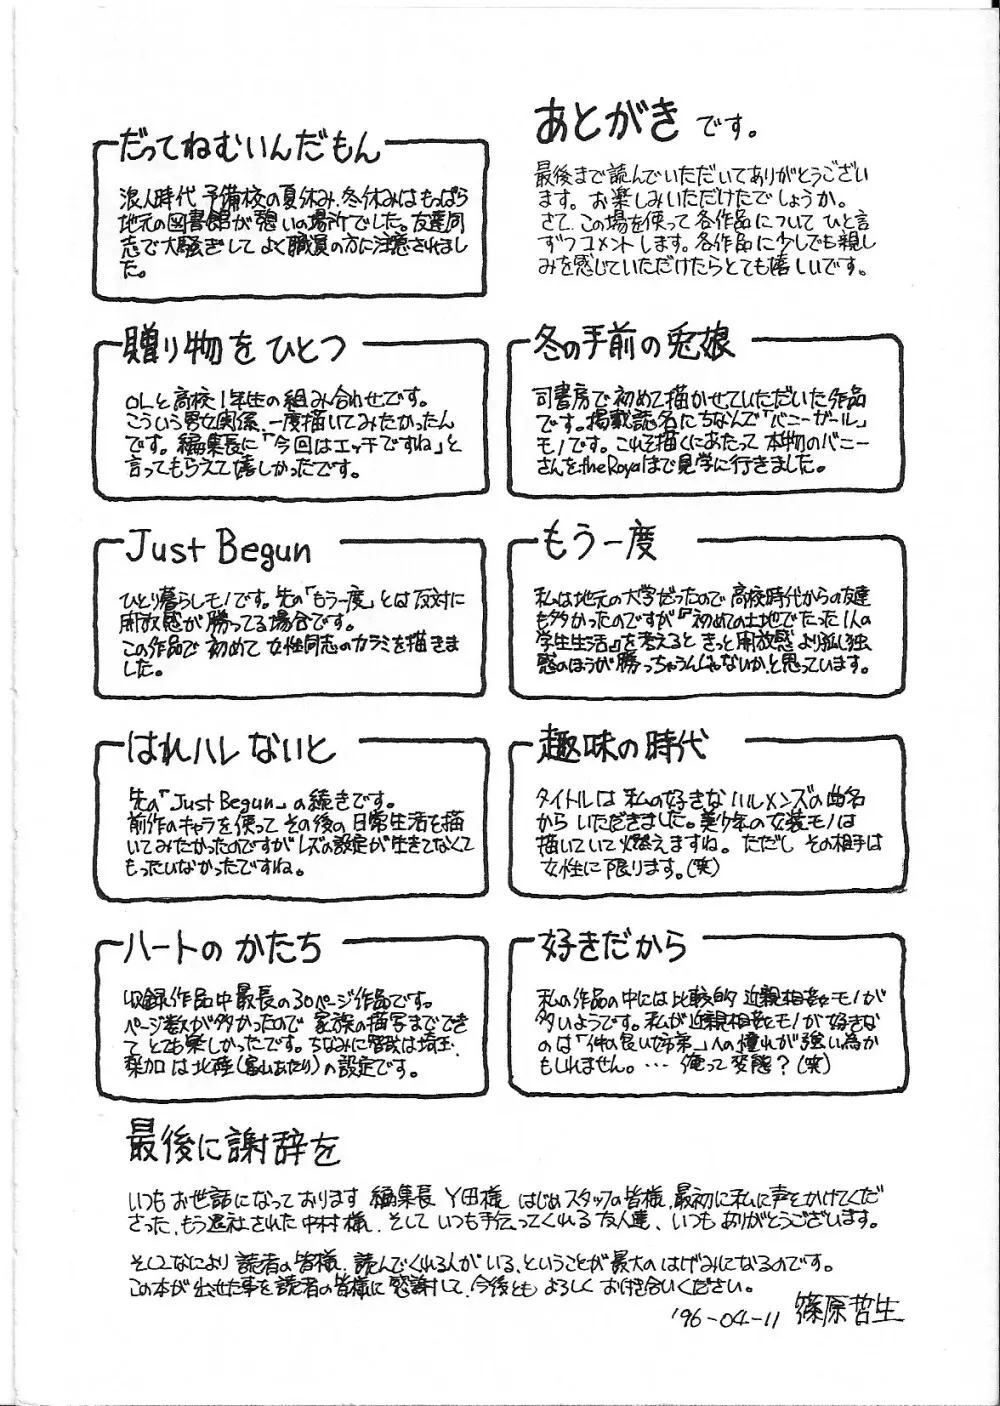 あとがき です。
最後まで読んでいただいてありがとうござい
ます。お楽しみいただけたでしょうか。
さて、この場を使って各作品について ひと言
ずつコメントします。各作品に少しでも親し
みを感じていただけたらとても嬉しいです。
冬の手前の兎娘
司書房で初めて描かせていただいた作品
です。掲載誌名にちなんで「バニーガール」
モノです。これを描くにあたって本物のバニー
さんをthe Royalまで見学に行きました。
もう一度
私は地元の大学だったので高校時代からの友達
も多かったのですが『初めての土地でたった1人の
学生生活』を考えると きっと開放感より孤独
感のほうが勝っちゃうんじゃないか、と思っています。
趣味の時代
タイトルは私の好きなハルメンズの曲名
からいただきました。美少年の女装モノは
描いていて燃えますね。ただし その相手は
女性に限ります。(笑)
好きだから
私の作品の中には比較的 近親相姦モノが
多いようです。私が近親相姦モノが好きな
のは「仲の良い姉弟」への憧れが強い為か
もしれません。… 俺って変態?(笑)
だってねむいんだもん
浪人時代 予備校の夏休み、冬休みはもっぱら
地元の図書館が憩いの場所でした。友達同
志で大騒ぎして よく職員の方に注意されまし
た。
贈り物を ひとつ
OLと高校1年生の組み合わせです。
こういう男女関係、一度描いてみたかったん
です。編集長に「今回はエッチですね」と
言ってもらえて嬉しかったです。
Just Begun
ひとり暮らしモノです。先の「もう一度」とは反対に
開放感が勝ってる場合です。
この作品で初めて 女性同志のカラミを描きま
した。
はれハレないと
先の「Just Begun」の続きです。
前作のキャラを使って その後の日常生活を描
いてみたかったのですがレズの設定が生きてなくて
もったいなかったですね。
ハートの かたち
収録作品中最長の30ページ作品です。
ページ数が多かったので 家族の描写までできて
て とても楽しかったです。ちなみに
は埼玉、
梨加は北陸(富山あたり)の設定です。
最後に謝辞を
いつも お世話になっております 編集長 Y田様、はじめスタッフの皆様、最初に私に声をかけてくだ
さった、もう退社された中村様、そして いつも手伝ってくれる友人達、いつも ありがとうございます。
そしてなにより 読者の皆様、読んでくれる人がいる、ということが最大のはげみになるのです。
この本が出せた事を読者の皆様に感謝して、今後とも よろしく お付き合いください。
'96-04-11 篠原哲生